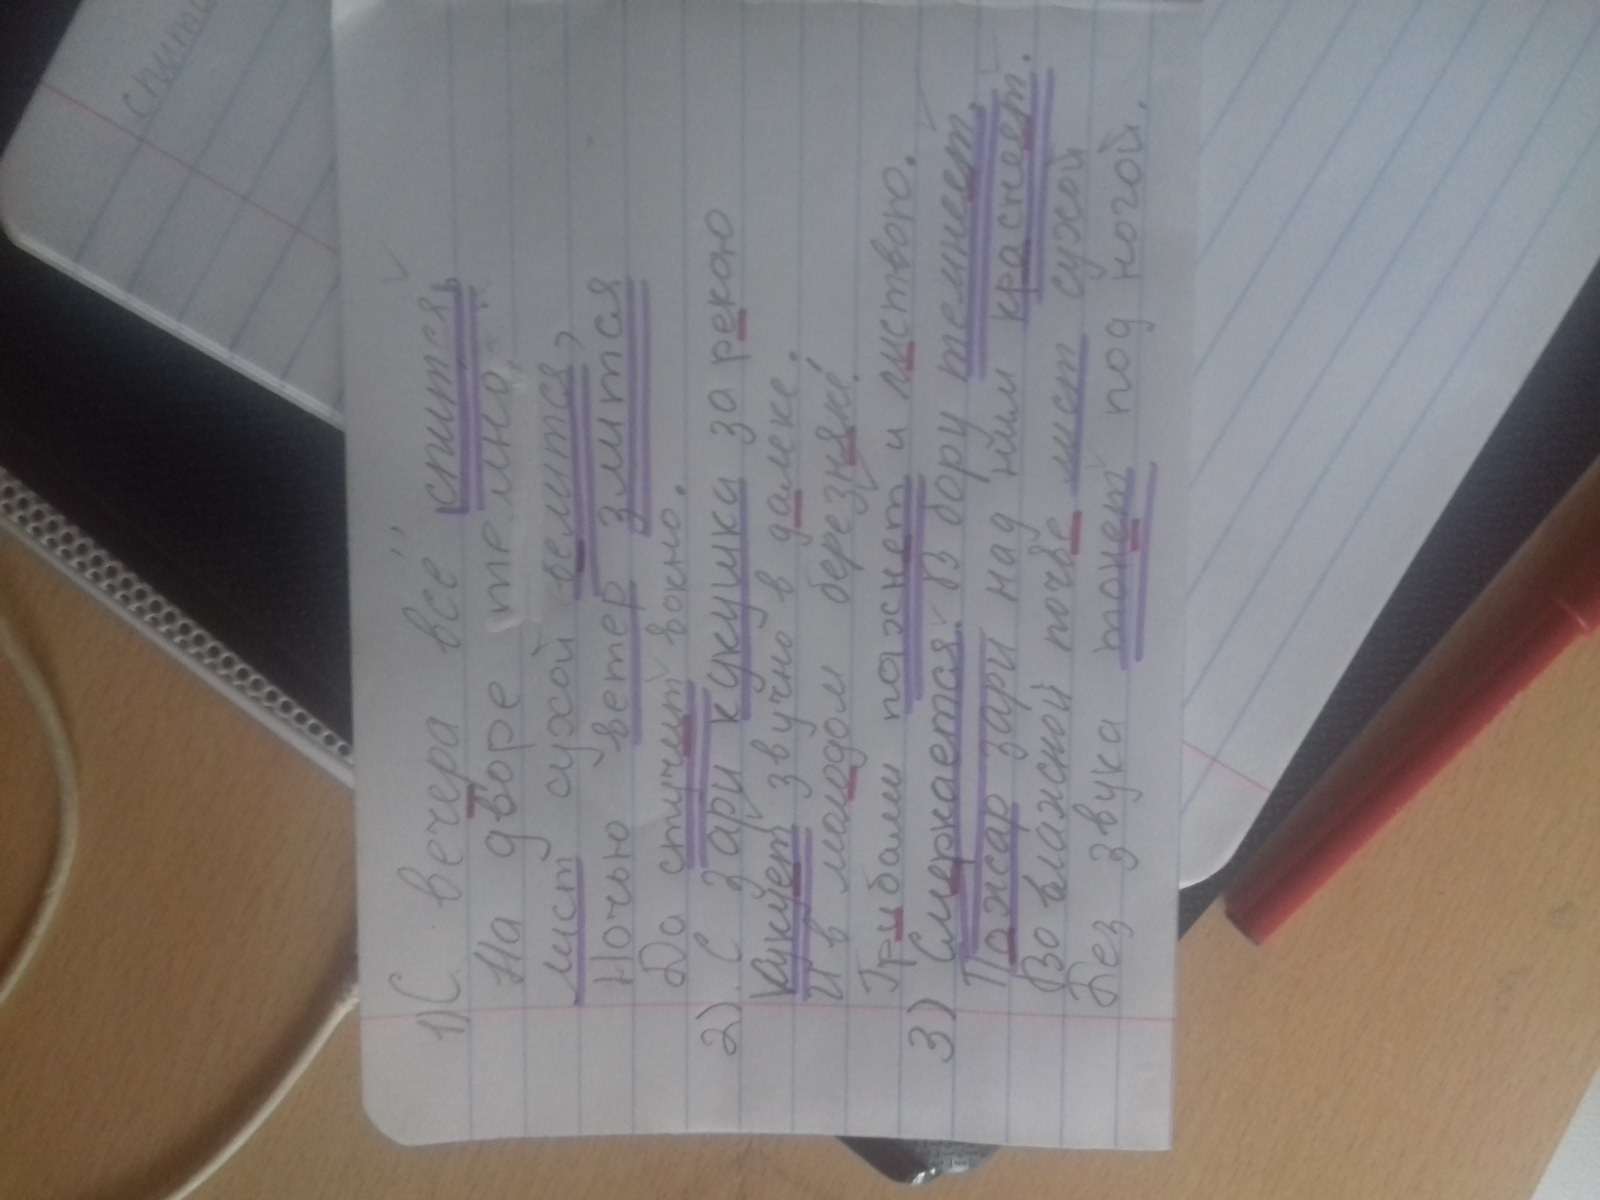 спит
1) С вечера всё спится,
На дворе темно,
лист сухой велится,
Ночью ветер злится
Да стучит вокно.
2) С зари кукушка за рекою
Кукует звучно в далеке.
И в молодом березняке
Грибами пахнет и листвою.
3) Смеркается. В бору темнеет.
Пажар зари над ним краснеят.
Во влажной почве лист сухой
Без звука тонет под ногой.